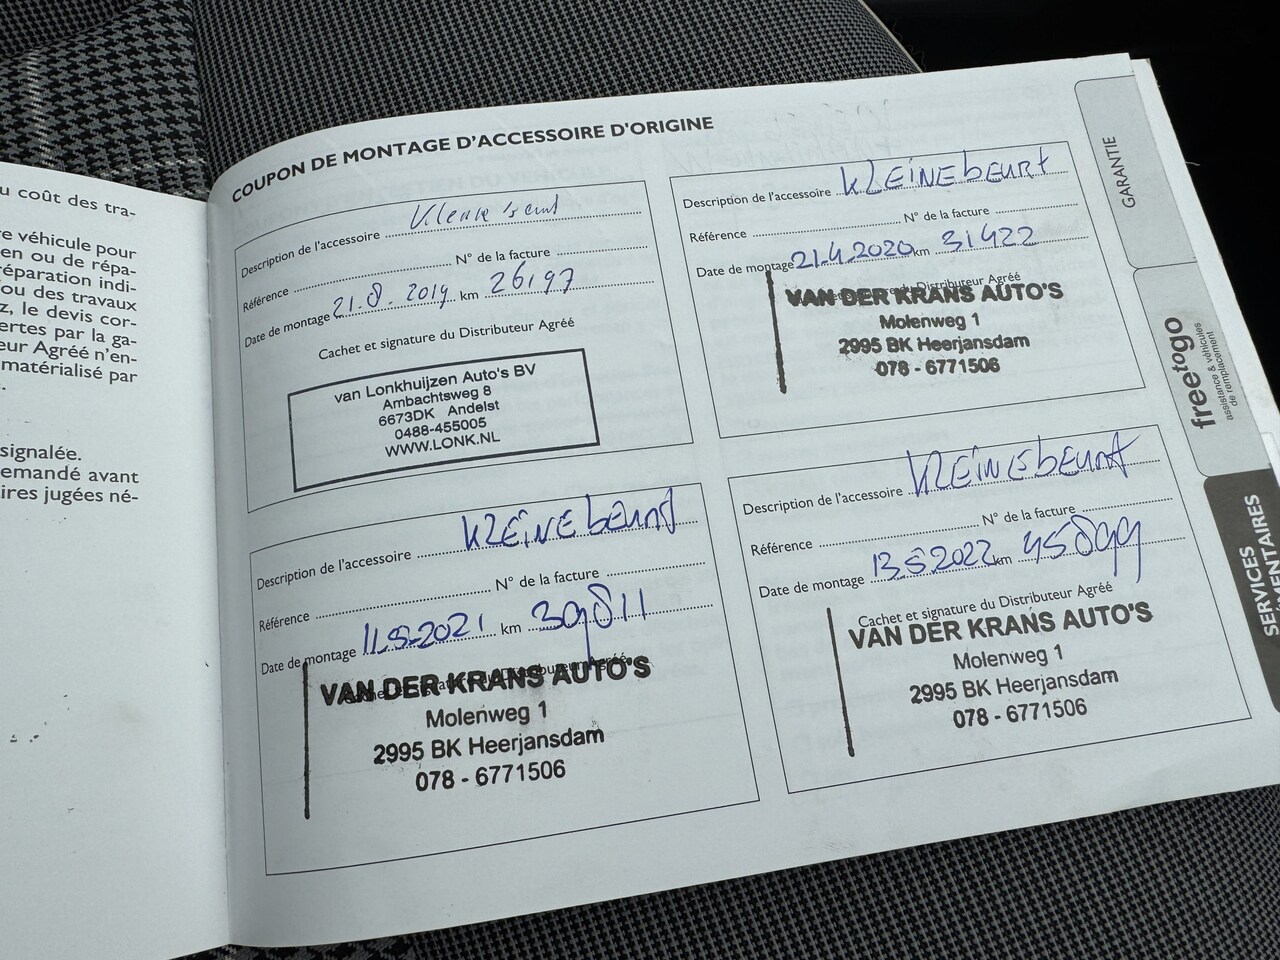 u coût des tra-
re véhicule pour
en ou de répa-
réparation indi-
ou des travaux
z, le devis cor-
ertes par la ga-
eur Agréé n'en-
matérialisé par
signalée.
emandé avant
ires jugées né-
COUPON DE MONTAGE D'ACCESSOIRE D'ORIGINE
Description de l'accessoire Kleine beurt
Référence N° de la facture
Date de montage 21.8.2019 km 26197
Cachet et signature du Distributeur Agréé
van Lonkhuijzen Auto's BV
Ambachtsweg 8
6673DK Andelst
0488-455005
WWW.LONK.NL
Description de l'accessoire KLEINE beurt
Référence N° de la facture
Date de montage 21.4.2020 km 31422
Cachet et signature du Distributeur Agréé
VAN DER KRANS AUTO'S
Molenweg 1
2995 BK Heerjansdam
078 - 6771506
Description de l'accessoire KLEINE beurt
Référence N° de la facture
Date de montage 11.5.2021 km 39811
Cachet et signature du Distributeur Agréé
VAN DER KRANS AUTO'S
Molenweg 1
2995 BK Heerjansdam
078 - 6771506
Description de l'accessoire KLEINE beurt
Référence N° de la facture
Date de montage 13.5.2022 km 45899
Cachet et signature du Distributeur Agréé
VAN DER KRANS AUTO'S
Molenweg 1
2995 BK Heerjansdam
078 - 6771506
GARANTIE
freetogo
assistance & véhicules
de remplacement
SERVICES